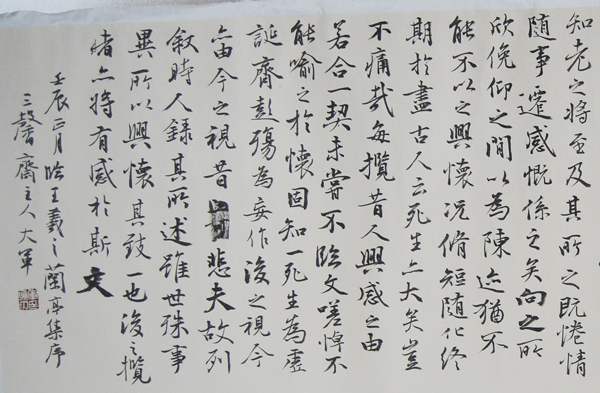 知老之將至及其所之既惓情
隨事遷感慨係之矣向之所
欣俛仰之間以為陳迹猶不
能不以之興懷况脩短隨化終
期於盡古人云死生亦大矣豈
不痛哉每攬昔人興感之由
若合一契未嘗不臨文嗟悼不
能喻之於懷固知一死生為虛
誕齊彭殤為妄作後之視今
亦由今之視昔悲夫故列
敘時人錄其所述雖世殊事
異所以興懷其致一也後之攬
者亦將有感於斯文
壬辰正月臨王羲之蘭亭集序
三馨齋主人大軍